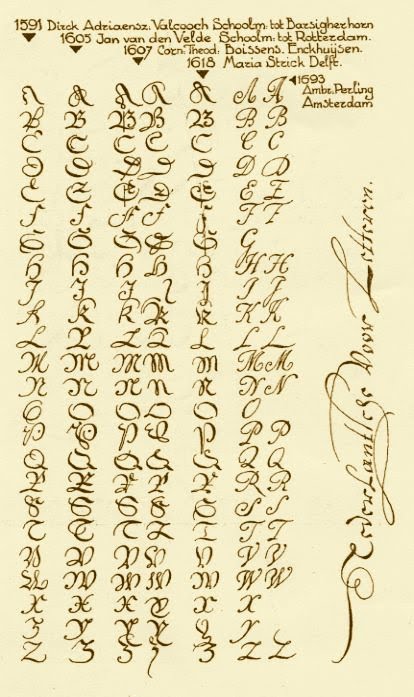 1591 Dirck Adriaensz: Valcooch Schoolm: tot Barsigherhorn
1605 Jan van den Velde Schoolm: tot Rotterdam.
1607 Corn: Theod: Boissens. Enckhuijsen.
1618 Maria Strick Delft.
1693
Ambr. Perling
Amsterdam
A A A A A A A
B B B B B B B
C C C C C C C
D D D D D D D
E E E E E E E
F F F F F F F
G G G G G G
H H H H H H H
I I I I I I I
K K K K K K K
L L L L L L L
M M M M M M M
N N N N N N N
O O O O O O
P P P P P P P
Q Q Q Q Q Q Q
R R R R R R R
S S S S S S S
T T T T T T T
V V V V V V V
W W W W W W W
X X X X X X
Y Y Y Y Y Y
Z Z Z Z Z Z Z
Nederlantsche Voor Letteren.